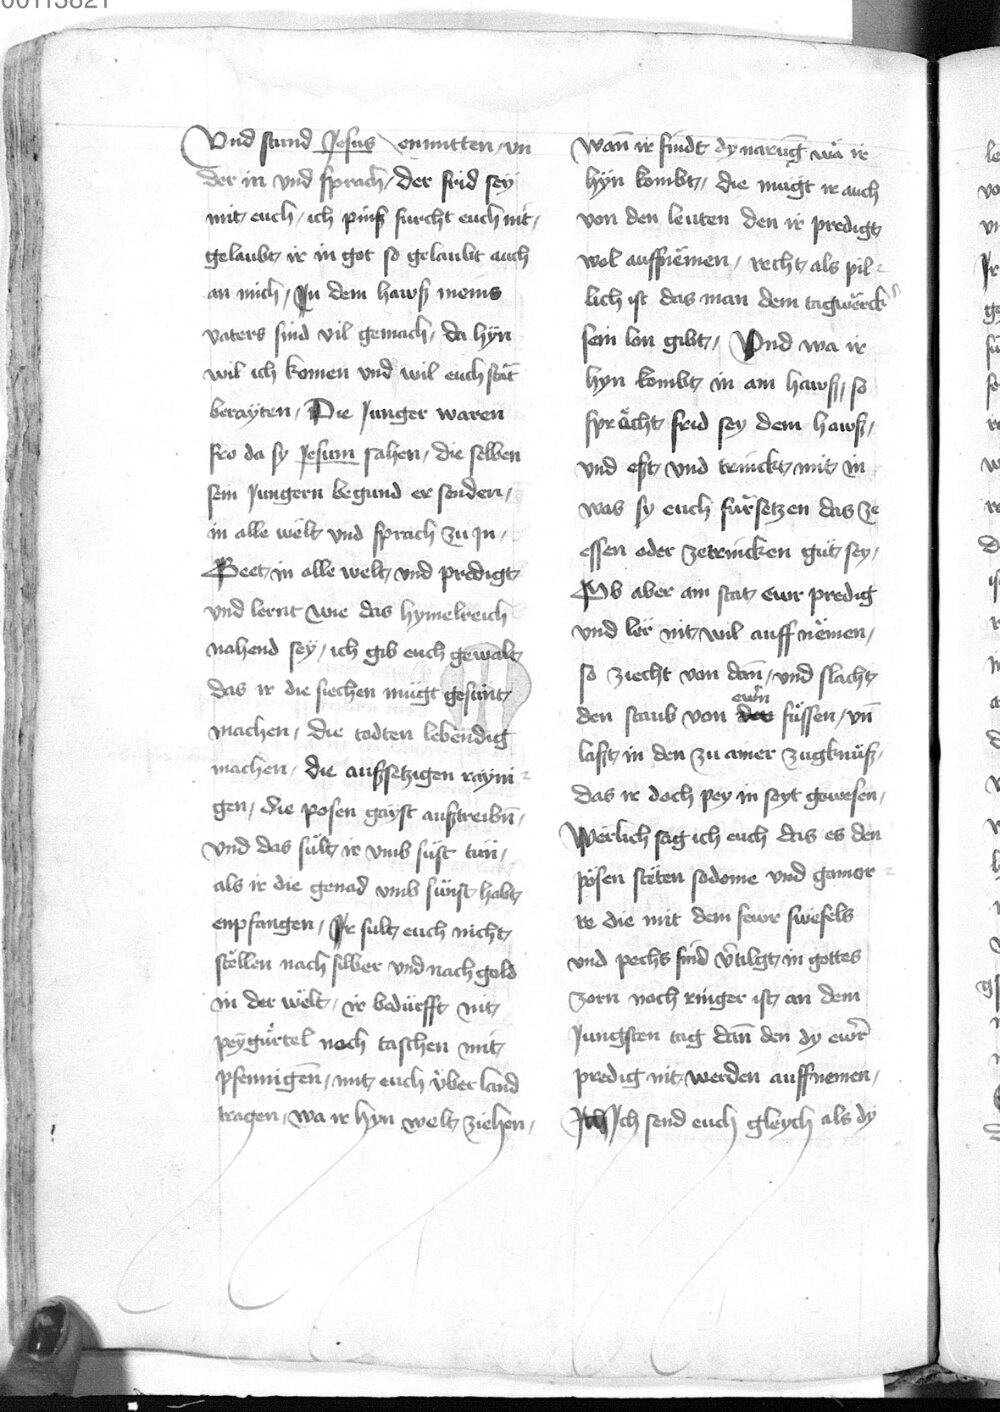 00113821
Vnd stund Jesus enmitten vn
der in vnd sprach / der frid sey
mit euch / ich pinß furcht euch nit /
gelaubt ir in got so gelaubt auch
an mich / In dem hawß meins
vaters sind vil gemach / da hyn
wil ich komen vnd wil euch stat
berayten / Die Junger waren
fro da sy Jesum sahen / die selben
sein Jungern begund er senden /
in alle welt vnd sprach zu jn /
Geet in alle welt vnd predigt
vnd lernt wie das hymelreich
nahend sey / ich gib euch gewalt
das ir die siechen mügt gesunt
machen / die todten lebendig
machen / die außsetzigen rayni
gen / die posen gayst außtreibn̄ /
vnd das sült ir vmb süst tün /
als ir die genad vmb sünst habt
enpfangen / Ir sult euch nicht
stellen nach silber vnd nach gold
in der welt / ir bedürfft nit
peygürtel noch taschen mit
pfennigen / mit euch über land
tragen / wa ir hyn welt ziehen /
wañ ir findt dy narūg wa ir
hyn kombt / die mügt ir auch
von den leuten den ir predigt
wol auffnemen / recht als pil
lich ist das man dem tagwerck
sein lon gibt / Vnd wa ir
hyn kombt in am hawß / so
sprächt frid sey dem hawß /
vnd est vnd trinckt mit in
was sy euch fürsetzen das ze
essen oder zetrincken gut sey /
Ob aber ain stat ewr predig
vnd ler nit wil auff nemen /
so ziecht von dañ / vnd slacht
den staub von ewrn füssen / vñ
laßt in den zu ainer zugknüß /
das ir doch pey in seyt gewesen /
Werlich sag ich euch das es den
pösen steten sodome vnd gamor
re die mit dem fewr swefels
vnd pechs sind v̄tilgt in gottes
zorn noch ringer ist an dem
Jungsten tag dañ den dy ewr̄
predig nit werden auffnemen /
Ich send euch gleych als dy